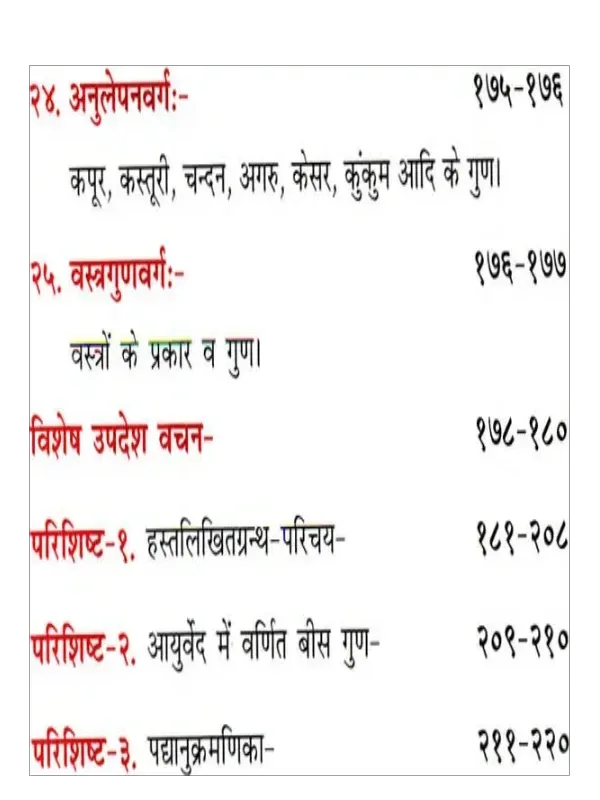 २४. अनुलेपनवर्गः- १७५-१७६
कपूर, कस्तूरी, चन्दन, अगरु, केसर, कुंकुम आदि के गुण।
२५. वस्त्रगुणवर्गः- १७६-१७७
वस्त्रों के प्रकार व गुण।
विशेष उपदेश वचन- १७८-१८०
परिशिष्ट-१. हस्तलिखितग्रन्थ-परिचय- १८१-२०८
परिशिष्ट-२. आयुर्वेद में वर्णित बीस गुण- २०९-२१०
परिशिष्ट-३. पद्यानुक्रमणिका- २११-२२०